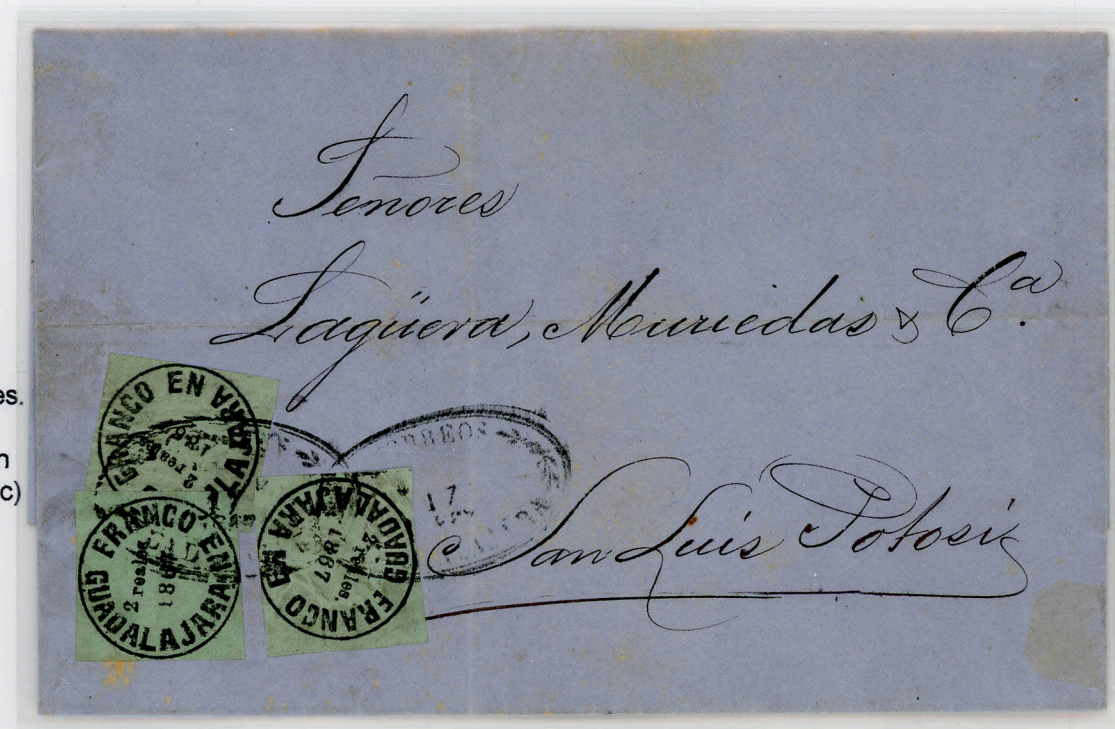 Señores
Lagüera, Muriedas & Cª
San Luis Potosí
es.
n
c)
FRANCO EN
GUADALAJARA
2 reales
1867
FRANCO EN
GUADALAJARA
2 reales
FRANCO EN
GUADALAJARA
2 reales
1867
CORREOS
17